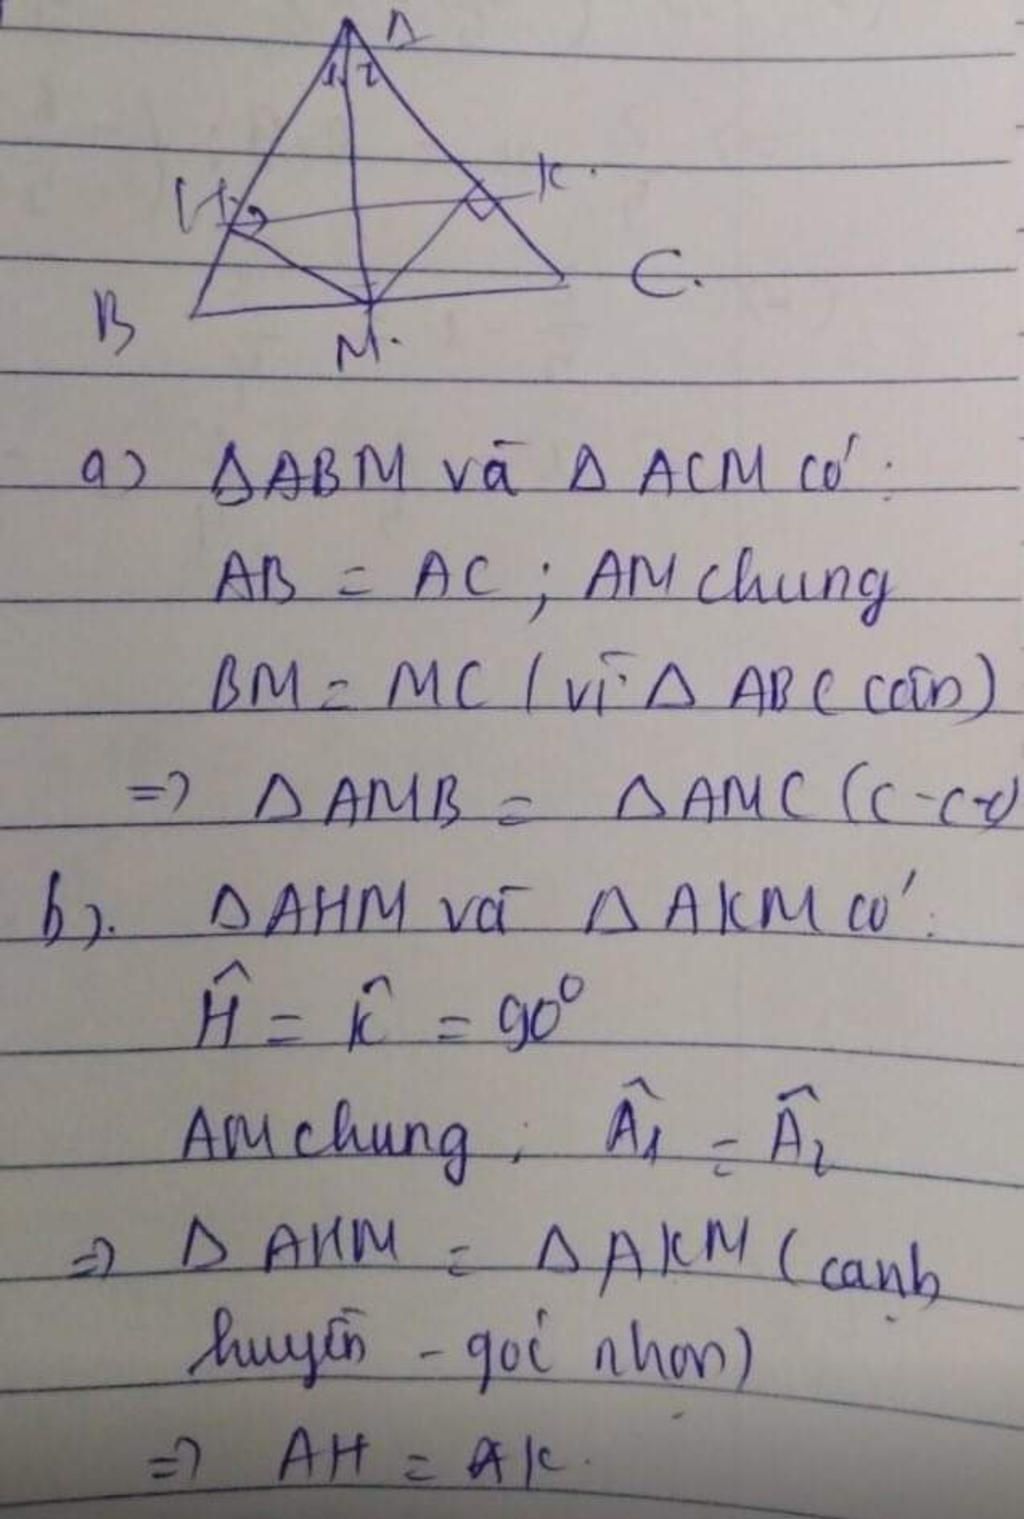 A
1 2
H
K.
B
C.
M.
a) ΔABM và Δ ACM có:
AB = AC ; AM chung
BM = MC (vì Δ ABC cân)
=> Δ AMB = Δ AMC (c-c-c)
b). ΔAHM và Δ AKM có:
Ĥ = K̂ = 90⁰
AM chung ; Â₁ = Â₂
=> Δ AHM = Δ AKM (cạnh
huyền - góc nhọn)
=> AH = AK.